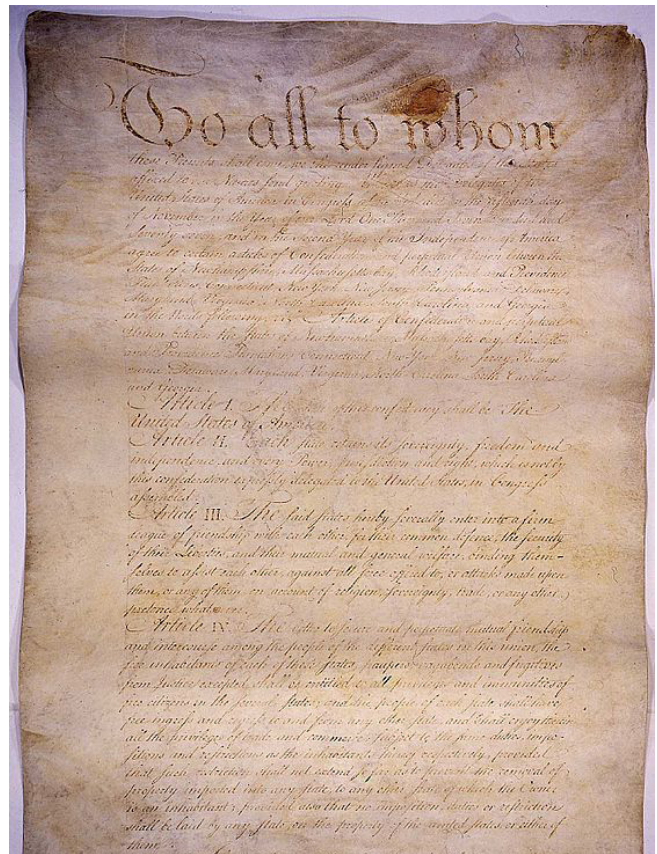 To all to whom
these Presents shall come, we the under signed Delegates of the States
affixed to our Names send greeting. Whereas the Delegates of the
United States of America in Congress assembled did on the fifteenth day
of November in the Year of our Lord One Thousand Seven Hundred and
Seventy seven, and in the Second Year of the Independence of America
agree to certain articles of Confederation and perpetual Union between the
States of Newhampshire, Massachusetts-bay, Rhodeisland and Providence
Plantations, Connecticut, New York, New Jersey, Pennsylvania, Delaware,
Maryland, Virginia, North-Carolina, South-Carolina and Georgia
in the Words following, viz. Articles of Confederation and perpetual
Union between the States of Newhampshire, Massachusetts-bay, Rhodeisland
and Providence Plantations, Connecticut, New-York, New-Jersey, Pennsyl-
vania, Delaware, Maryland, Virginia, North-Carolina, South-Carolina
and Georgia.
Article I. The Stile of this confederacy shall be "The
United States of America."
Article II. Each state retains its sovereignty, freedom and
independence, and every Power, Jurisdiction and right, which is not by
this confederation expressly delegated to the United States, in Congress
assembled.
Article III. The said states hereby severally enter into a firm
league of friendship with each other, for their common defence, the security
of their Liberties, and their mutual and general welfare, binding them-
selves to assist each other, against all force offered to, or attacks made upon
them, or any of them, on account of religion, sovereignty, trade, or any other
pretence whatever.
Article IV. The better to secure and perpetuate mutual friendship
and intercourse among the people of the different states in this union, the
free inhabitants of each of these states, paupers, vagabonds and fugitives
from Justice excepted, shall be entitled to all privileges and immunities of
free citizens in the several states; and the people of each state shall have
free ingress and regress to and from any other state, and shall enjoy therein
all the privileges of trade and commerce, subject to the same duties, impo-
sitions and restrictions as the inhabitants thereof respectively, provided
that such restriction shall not extend so far as to prevent the removal of
property imported into any state, to any other state of which the Owner
is an inhabitant; provided also that no imposition, duties or restriction
shall be laid by any state, on the property of the united states, or either of
them.